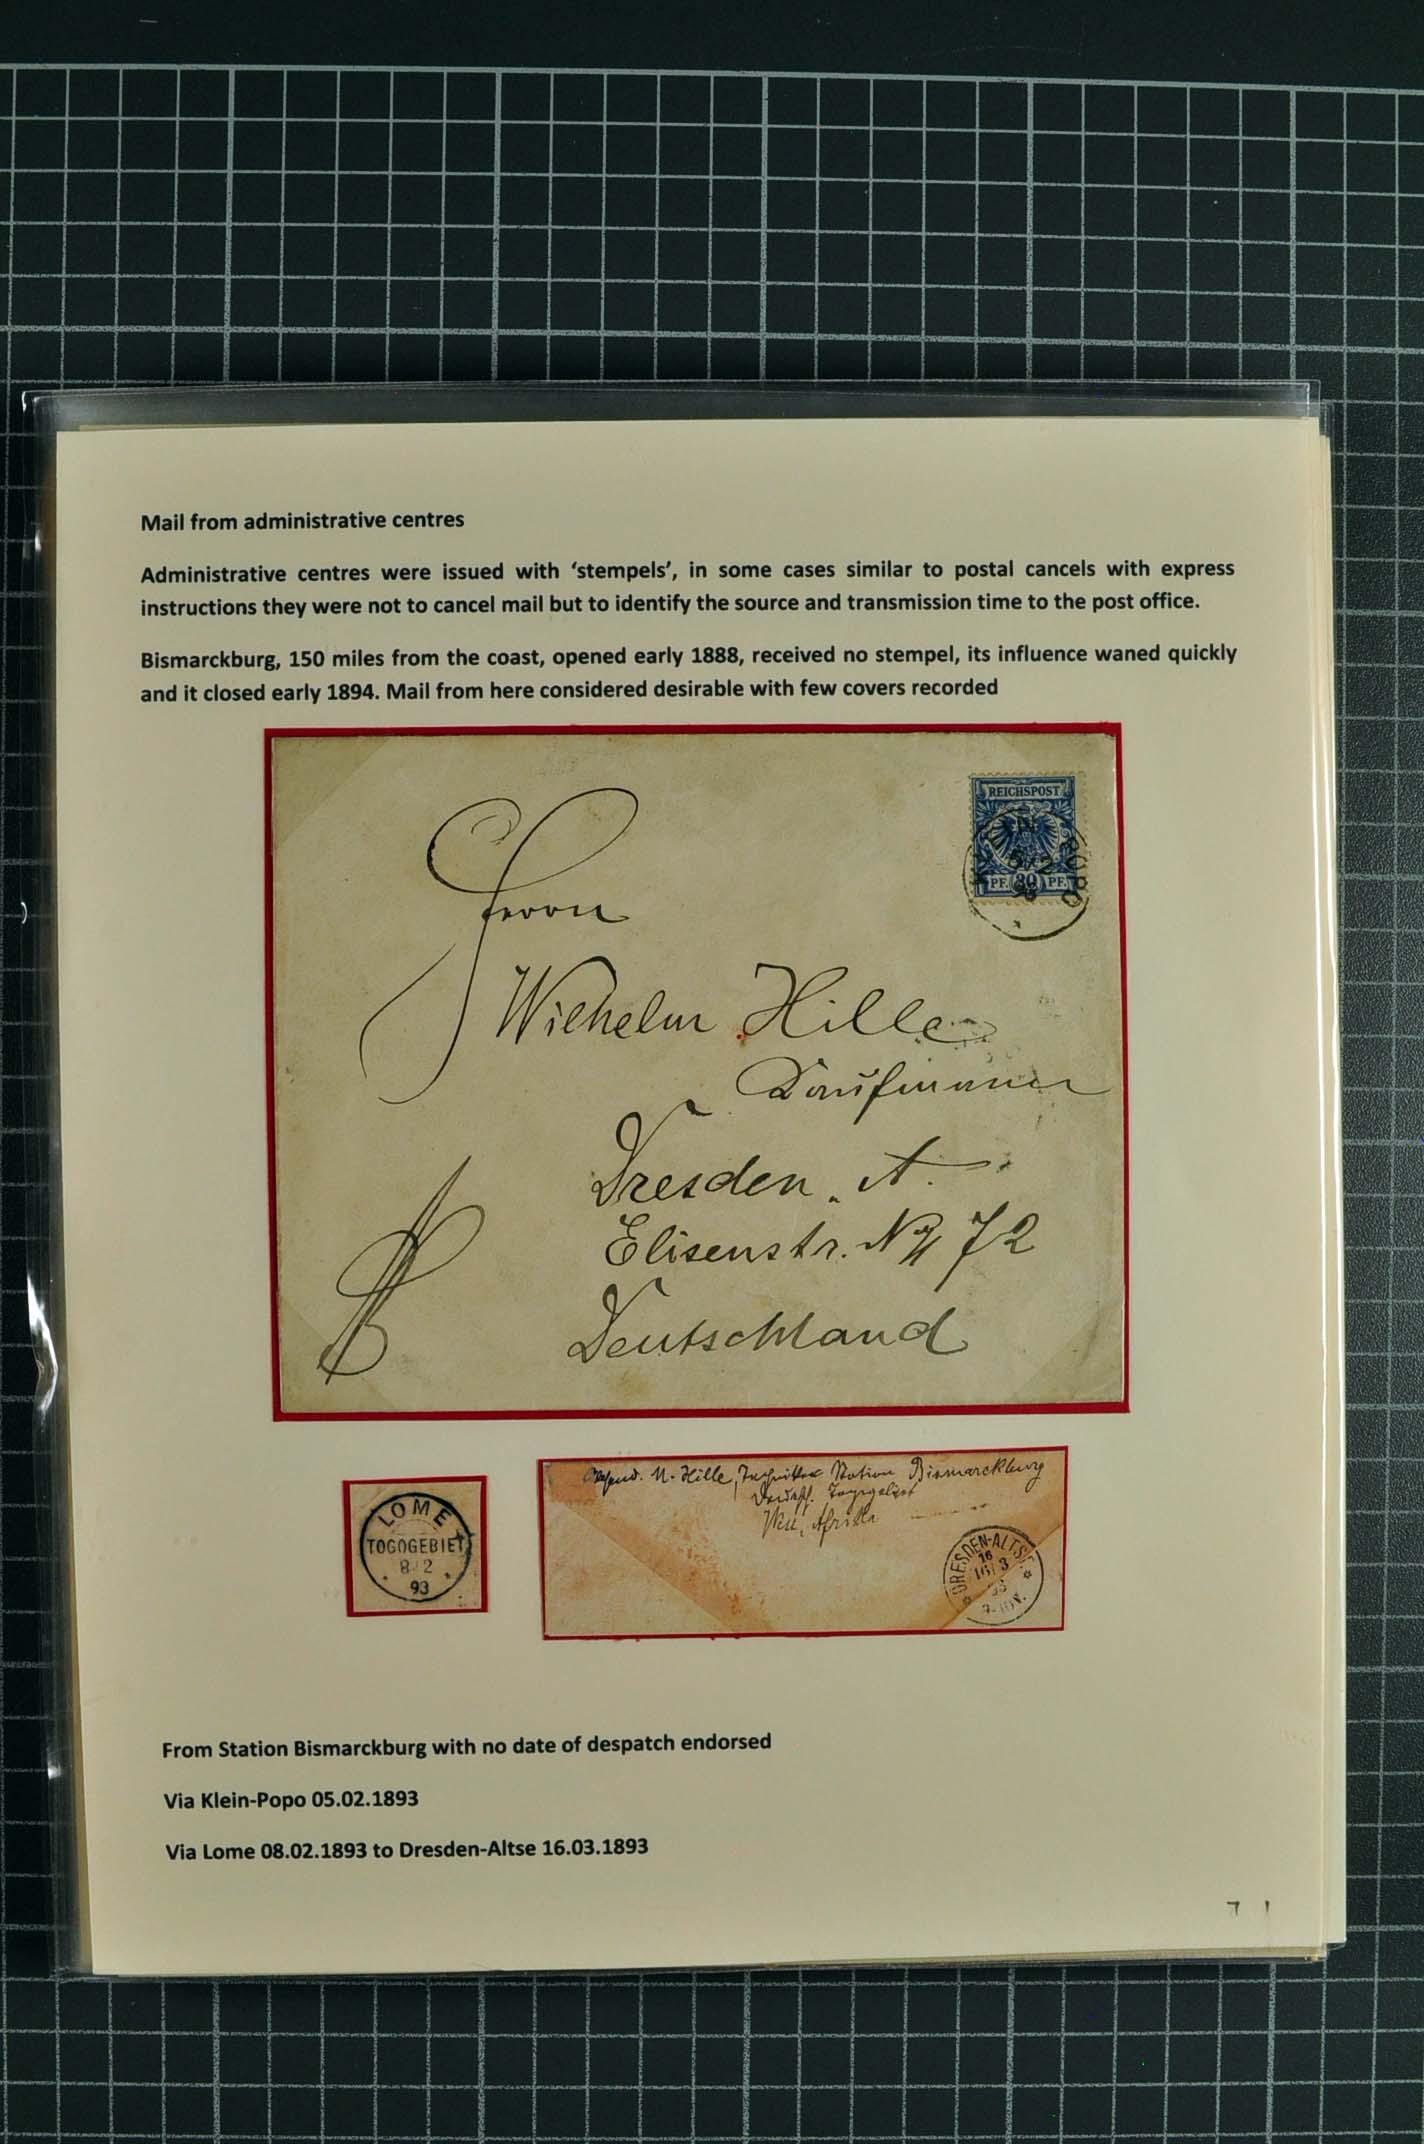 Mail from administrative centres
Administrative centres were issued with ‘stempels’, in some cases similar to postal cancels with express
instructions they were not to cancel mail but to identify the source and transmission time to the post office.
Bismarckburg, 150 miles from the coast, opened early 1888, received no stempel, its influence waned quickly
and it closed early 1894. Mail from here considered desirable with few covers recorded
REICHSPOST
PF. 20 PF.
KLEIN POPO
5/2
93
Herrn
Wilhelm Hille
Kaufmann
Dresden. A.
Elisenstr. No 72
Deutschland
LOME
TOGOGEBIET
8/2
93
Absend. M. Hille, Techniker Station Bismarckburg
Deutsch. Togogebiet
West, Afrika
DRESDEN-ALTST.
16
3
93
From Station Bismarckburg with no date of despatch endorsed
Via Klein-Popo 05.02.1893
Via Lome 08.02.1893 to Dresden-Altse 16.03.1893
71